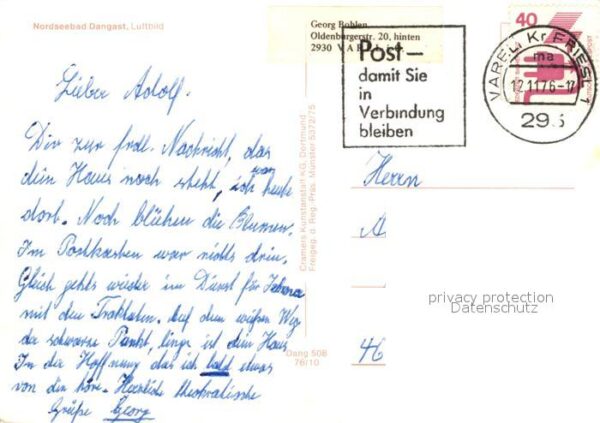 Nordseebad Dangast, Luftbild
Georg Bohlen
Oldenburgerstr. 20, hinten
2930 V A R E L i. O.
Post –
damit Sie
in
Verbindung
bleiben
40
VAREL, Kr FRIESL 1
ma
12.11.76-17
295
Lieber Adolf.
Dir zur frdl. Nachricht, das
dein Haus noch steht, ich war heute
dort. Noch blühen die Blumen.
Im Postkasten war nichts drin.
Gleich gehts wieder im Dienst für Jehova
mit den Traktaten. Auf dem weißen Weg
der schwarze Punkt, links ist dein Haus
In der Hoffnung das ich bald etwas
von dir höre. Herzliche theokratische
Grüße Georg
Cramers Kunstanstalt KG, Dortmund
Freigeg. d. Reg.-Präs. Münster 5372/75
Dang 50B
76/10
Herrn
A
46
privacy protection
Datenschutz